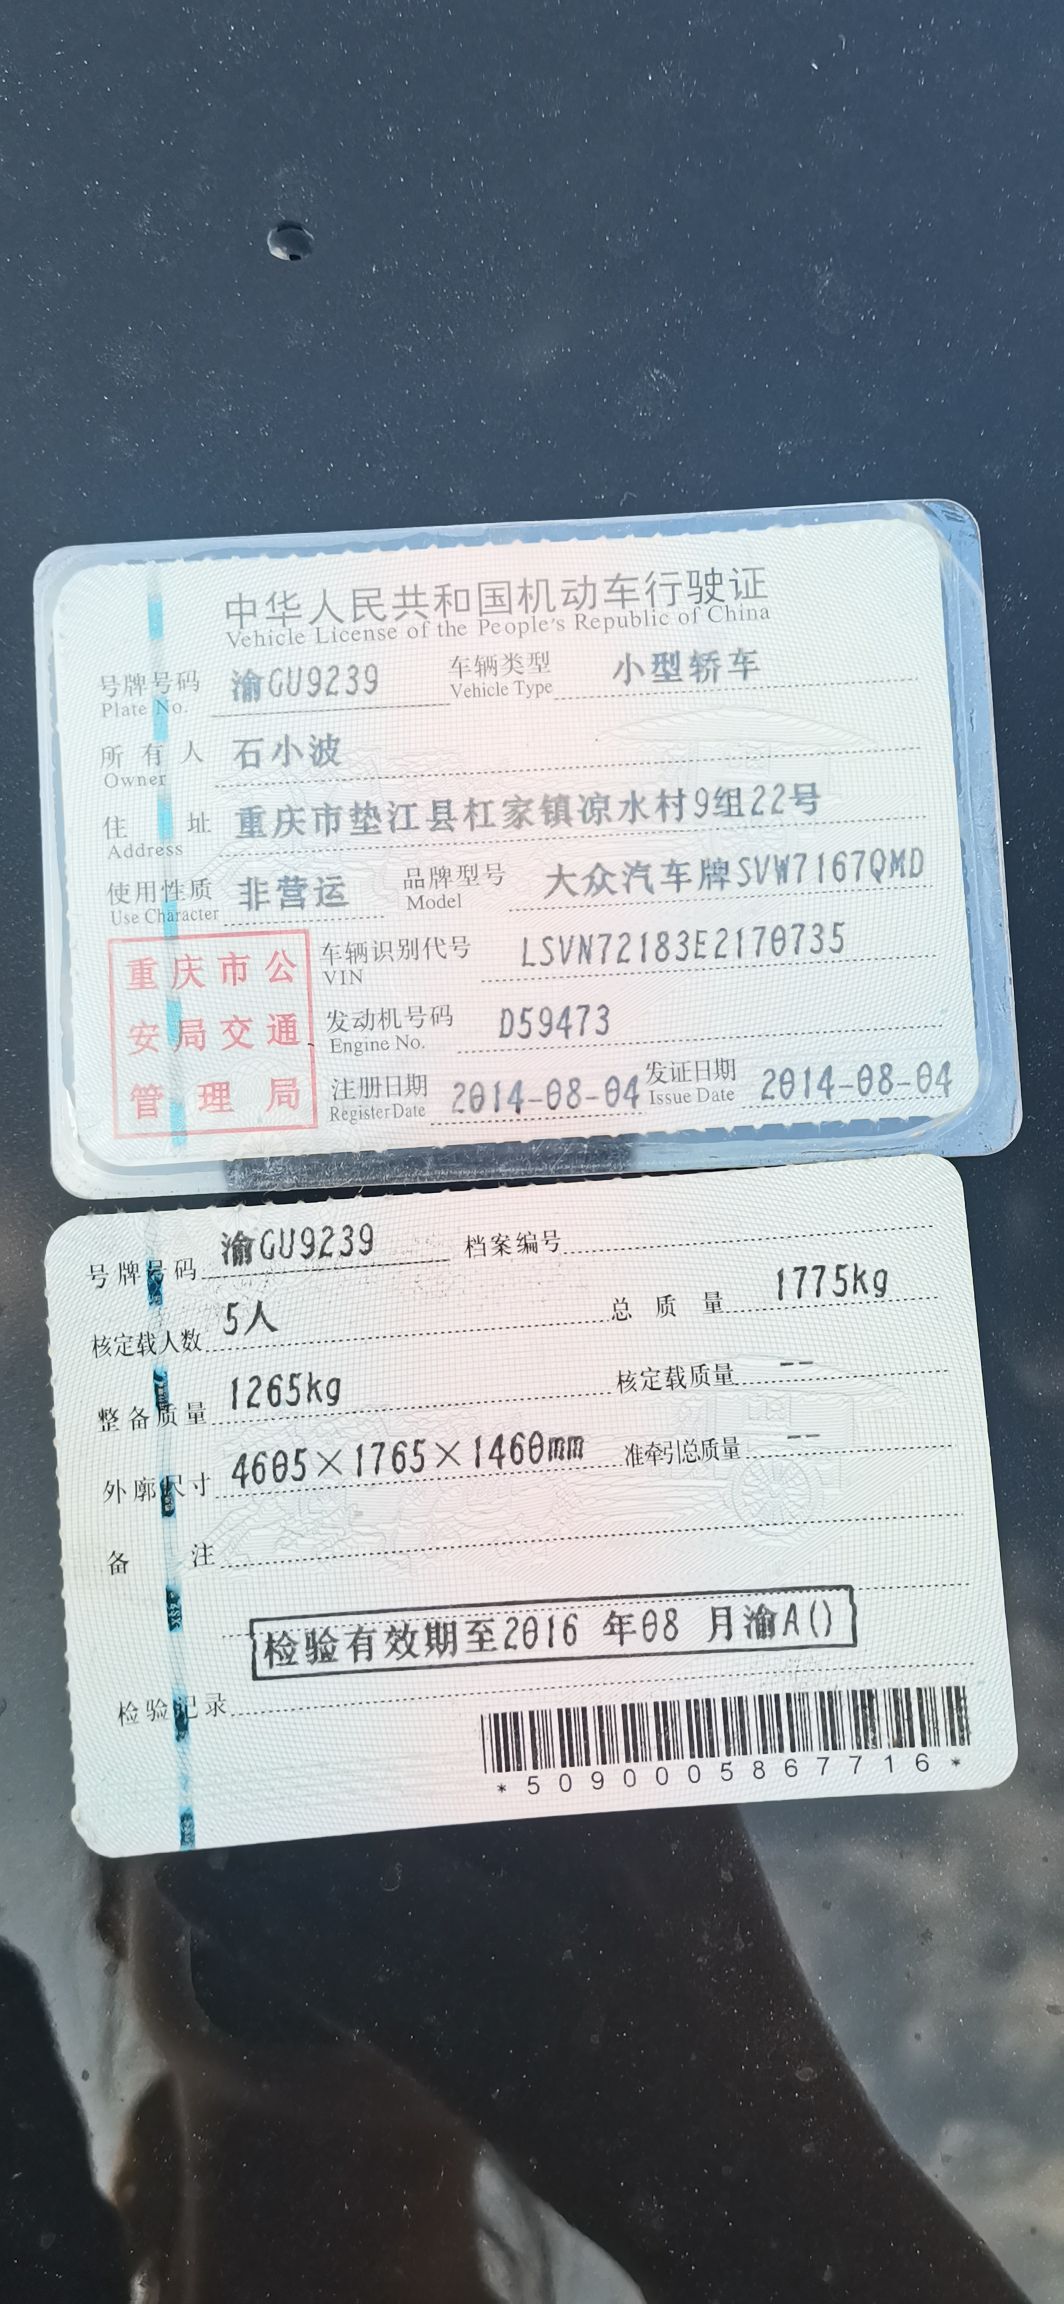 中华人民共和国机动车行驶证
Vehicle License of the People's Republic of China
号牌号码 渝GU9239 车辆类型 小型轿车
Plate No. Vehicle Type
所有人 石小波
Owner
住址 重庆市垫江县杠家镇凉水村9组22号
Address
使用性质 非营运 品牌型号 大众汽车牌SVW7167QMD
Use Character Model
车辆识别代号 LSVN72183E2170735
VIN
发动机号码 D59473
Engine No.
注册日期 2014-08-04 发证日期 2014-08-04
Register Date Issue Date
重庆市公
安局交通
管理局
号牌号码 渝GU9239 档案编号
核定载人数 5人 总质量 1775kg
整备质量 1265kg 核定载质量 --
外廓尺寸 4605×1765×1460mm 准牵引总质量 --
备注
检验有效期至2016 年08 月渝A()
检验记录
*5090005867716*